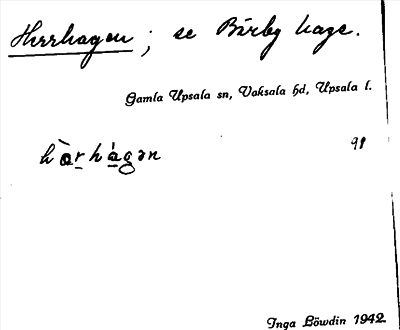 Herrhagen ; se Bärby hage.
Gamla Upsala sn, Vaksala hd, Upsala l.
98
Inga Löwdin 1942